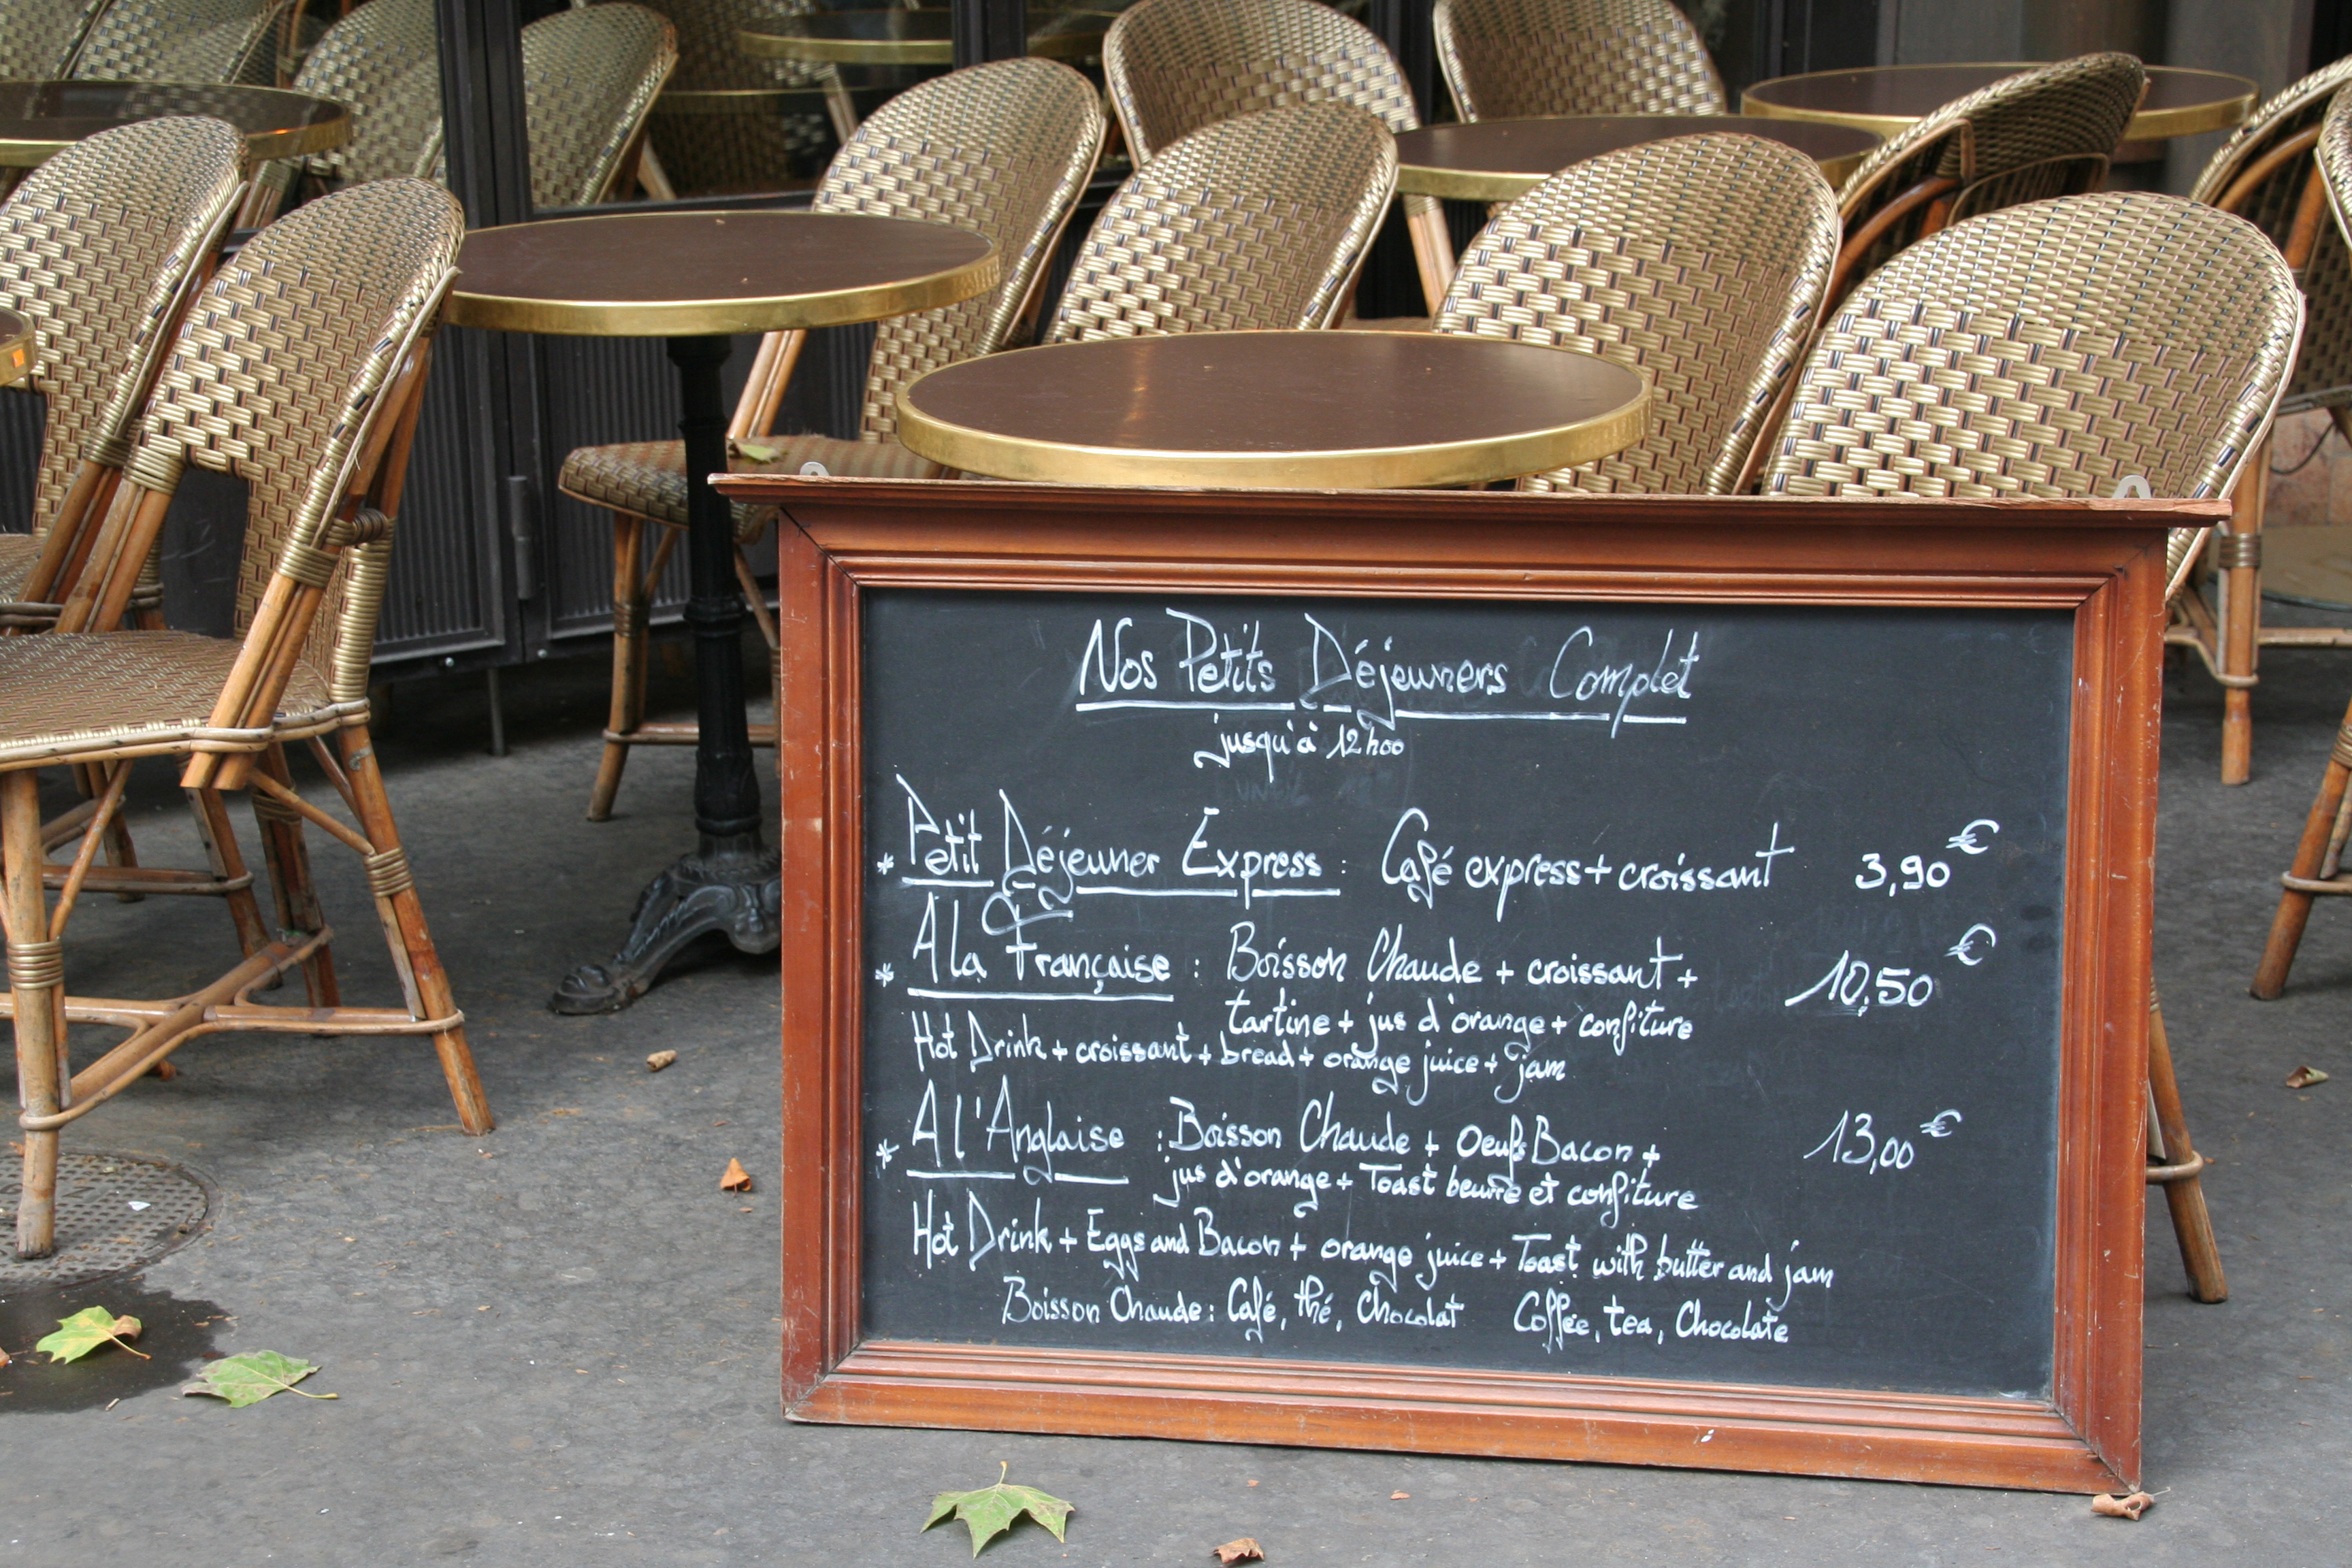 Nos Petits Déjeuners Complet
jusqu'à 12h00
* Petit Déjeuner Express : Café express + croissant 3,90€
* A la Française : Boisson Chaude + croissant + 10,50€
tartine + jus d'orange + confiture
Hot Drink + croissant + bread + orange juice + jam
* A l'Anglaise : Boisson Chaude + Oeufs Bacon + 13,00€
jus d'orange + Toast beurre et confiture
Hot Drink + Eggs and Bacon + orange juice + Toast with butter and jam
Boisson Chaude : Café, thé, Chocolat Coffee, tea, Chocolate